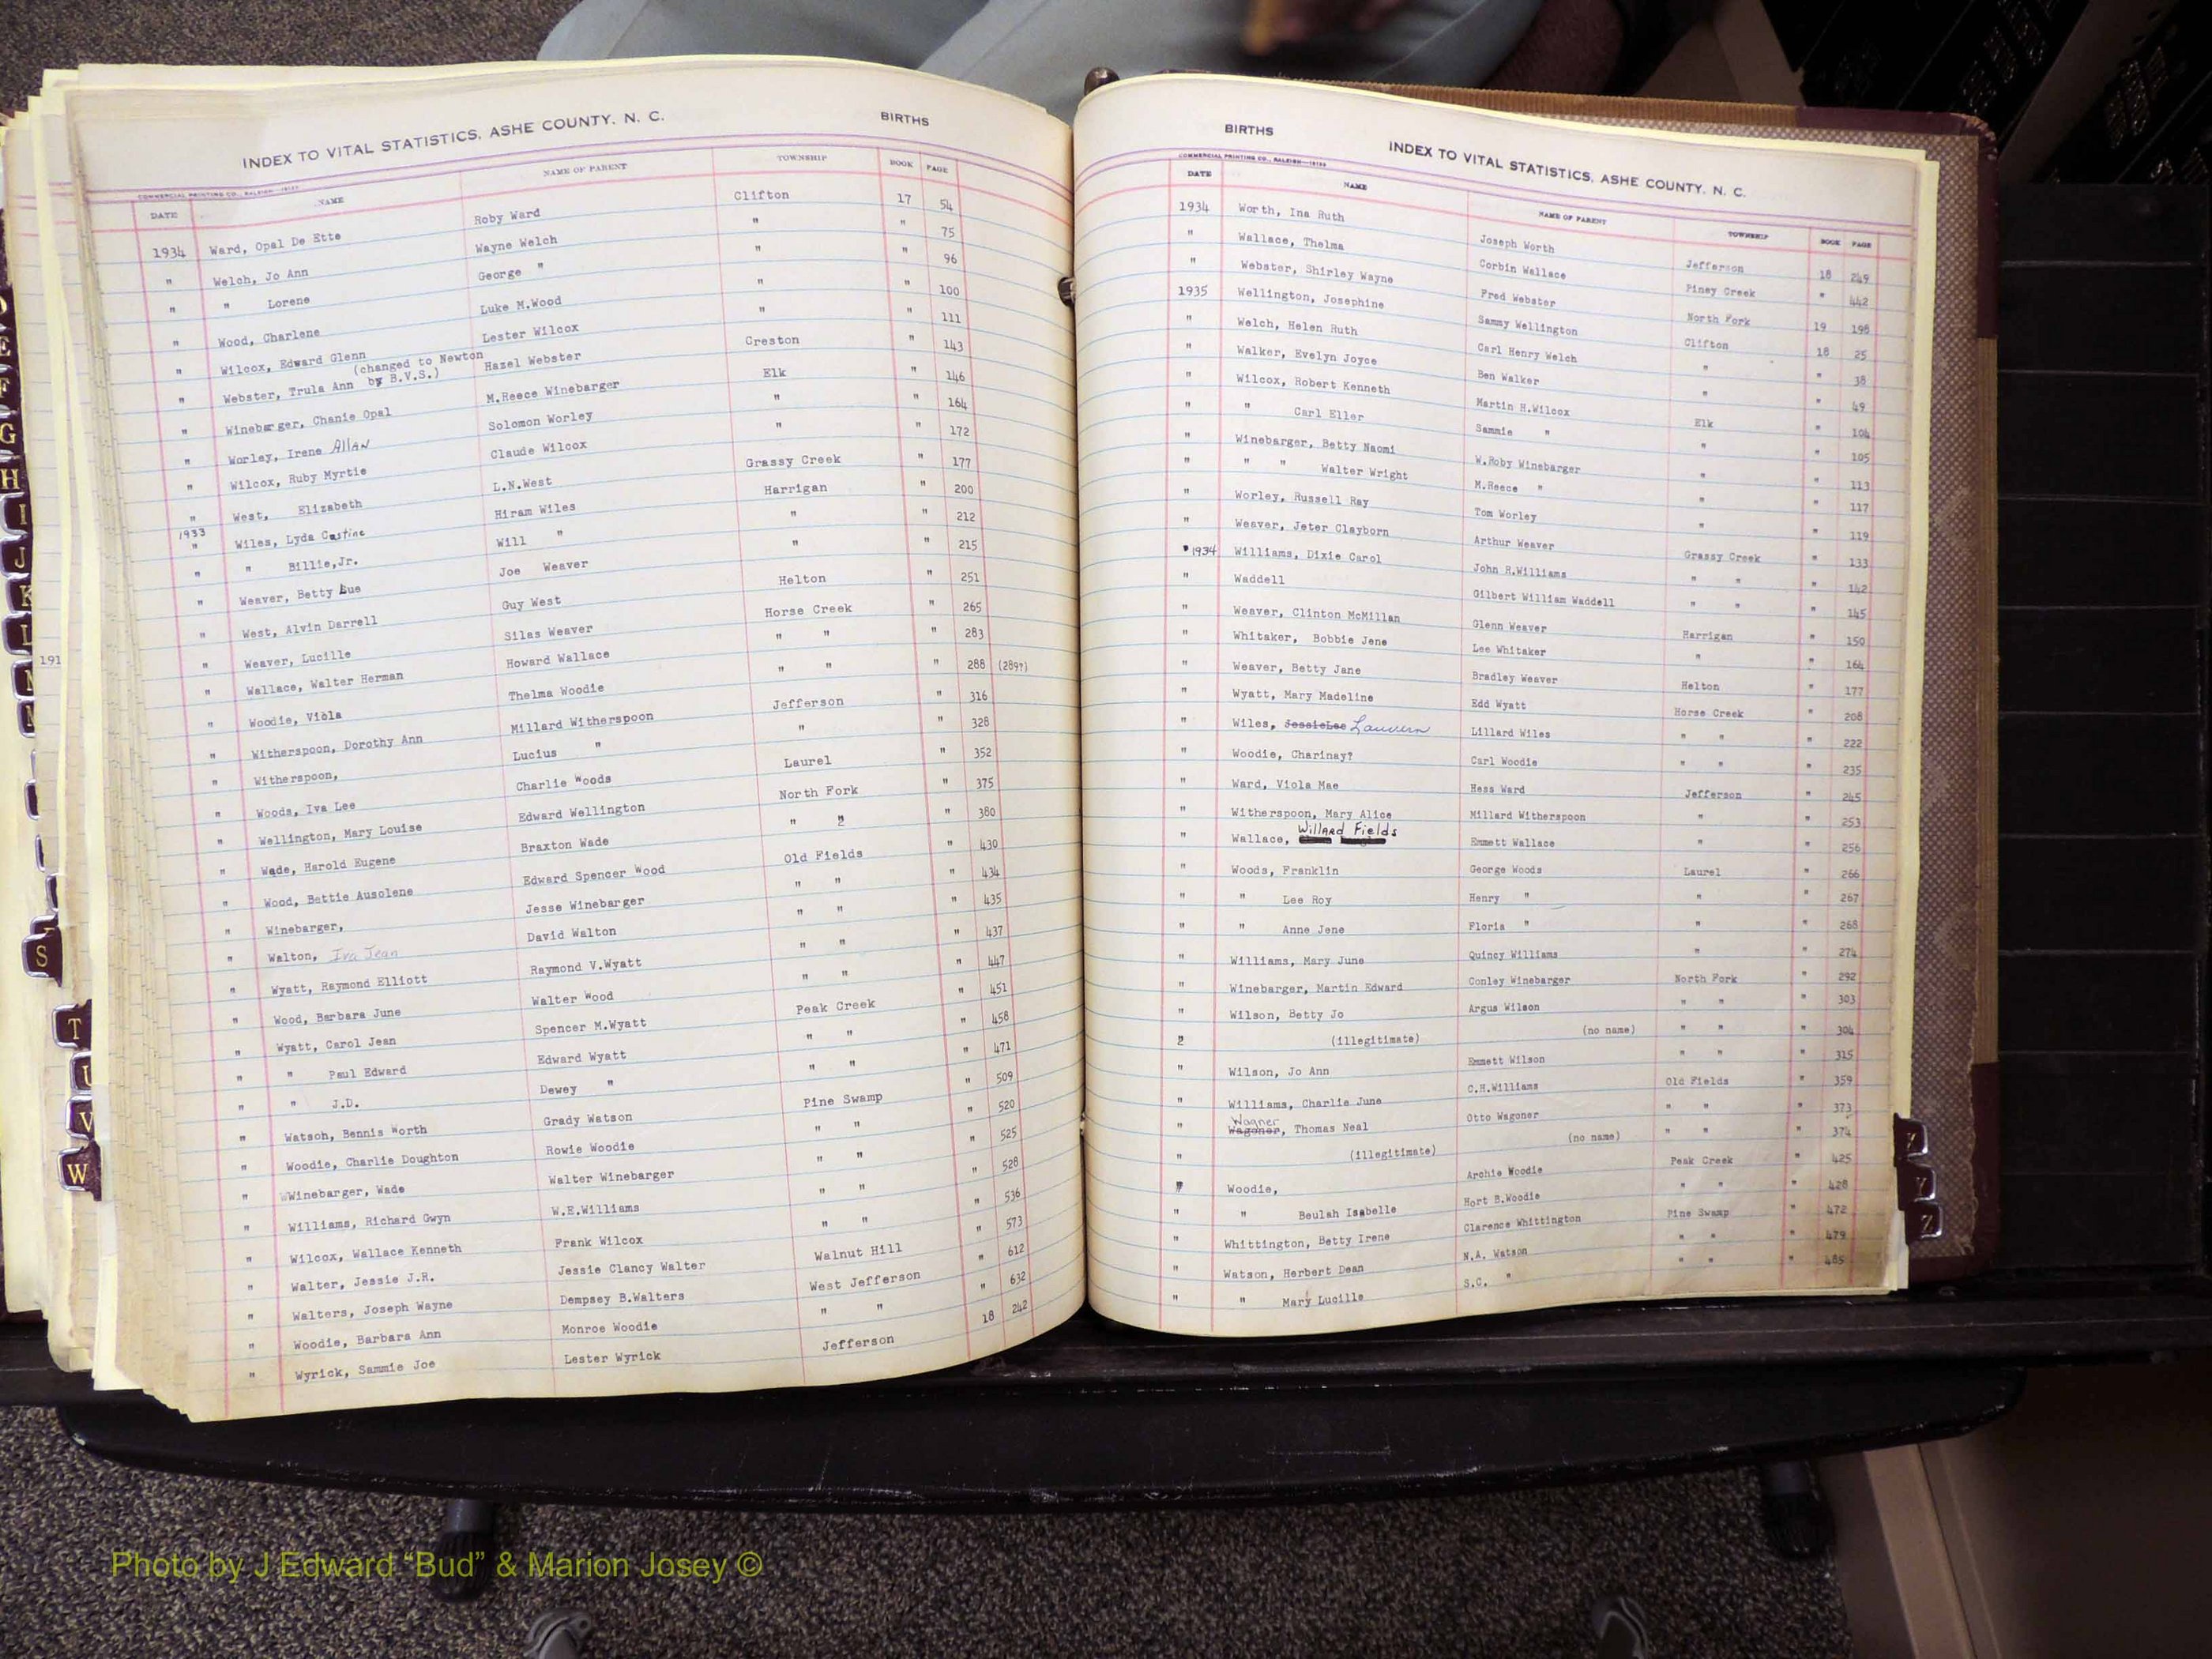 INDEX TO VITAL STATISTICS, ASHE COUNTY, N. C. BIRTHS
COMMERCIAL PRINTING CO., RALEIGH—
DATE NAME NAME OF PARENT TOWNSHIP BOOK PAGE
1934 Ward, Opal De Ette Roby Ward Clifton 17 54
" Welch, Jo Ann Wayne Welch " " 75
" " Lorene George " " " 96
" Wood, Charlene Luke M.Wood " " 100
" Wilcox, Edward Glenn Lester Wilcox " " 111
(changed to Newton
" Webster, Trula Ann by B.V.S.) Hazel Webster Creston " 143
" Winebarger, Chanie Opal M.Reece Winebarger Elk " 146
" Worley, Irene Allan Solomon Worley " " 164
" Wilcox, Ruby Myrtie Claude Wilcox " " 172
" West, Elizabeth L.N.West Grassy Creek " 177
1933
" Wiles, Lyda Castine Hiram Wiles Harrigan " 200
" " Billie,Jr. Will " " " 212
" Weaver, Betty Lue Joe Weaver " " 215
" West, Alvin Darrell Guy West Helton " 251
" Weaver, Lucille Silas Weaver Horse Creek " 265
" Wallace, Walter Herman Howard Wallace " " " 283
" Woodie, Viola Thelma Woodie " " " 288 (289?)
" Witherspoon, Dorothy Ann Millard Witherspoon Jefferson " 316
" Witherspoon, Lucius " " " 328
" Woods, Iva Lee Charlie Woods Laurel " 352
" Wellington, Mary Louise Edward Wellington North Fork " 375
" Wade, Harold Eugene Braxton Wade " 2 " 380
" Wood, Bettie Ausolene Edward Spencer Wood Old Fields " 430
" Winebarger, Jesse Winebarger " " " 434
" Walton, Iva Jean David Walton " " " 435
" Wyatt, Raymond Elliott Raymond V.Wyatt " " " 437
" Wood, Barbara June Walter Wood " " " 447
" Wyatt, Carol Jean Spencer M.Wyatt Peak Creek " 451
" " Paul Edward Edward Wyatt " " " 458
" " J.D. Dewey " " " " 471
" Watson, Bennis Worth Grady Watson Pine Swamp " 509
" Woodie, Charlie Doughton Rowie Woodie " " " 520
" Winebarger, Wade Walter Winebarger " " " 525
" Williams, Richard Gwyn W.E.Williams " " " 528
" Wilcox, Wallace Kenneth Frank Wilcox " " " 536
" Walter, Jessie J.R. Jessie Clancy Walter Walnut Hill " 573
" Walters, Joseph Wayne Dempsey B.Walters West Jefferson " 612
" Woodie, Barbara Ann Monroe Woodie " " " 632
" Wyrick, Sammie Joe Lester Wyrick Jefferson 18 242
BIRTHS INDEX TO VITAL STATISTICS, ASHE COUNTY, N. C.
COMMERCIAL PRINTING CO., RALEIGH—
DATE NAME NAME OF PARENT TOWNSHIP BOOK PAGE
1934 Worth, Ina Ruth Joseph Worth Jefferson 18 249
" Wallace, Thelma Corbin Wallace Piney Creek " 442
" Webster, Shirley Wayne Fred Webster North Fork 19 198
1935 Wellington, Josephine Sammy Wellington Clifton 18 25
" Welch, Helen Ruth Carl Henry Welch " " 38
" Walker, Evelyn Joyce Ben Walker " " 49
" Wilcox, Robert Kenneth Martin H.Wilcox Elk " 104
" " Carl Eller Sammie " " " 105
" Winebarger, Betty Naomi W.Roby Winebarger " " 113
" " " Walter Wright M.Reece " " " 117
" Worley, Russell Ray Tom Worley " " 119
" Weaver, Jeter Clayborn Arthur Weaver Grassy Creek " 133
1934 Williams, Dixie Carol John R.Williams " " " 142
" Waddell Gilbert William Waddell " " " 145
" Weaver, Clinton McMillan Glenn Weaver Harrigan " 150
" Whitaker, Bobbie Jene Lee Whitaker " " 164
" Weaver, Betty Jane Bradley Weaver Helton " 177
" Wyatt, Mary Madeline Edd Wyatt Horse Creek " 208
" Wiles, JessieLee Lauvern Lillard Wiles " " " 222
" Woodie, Charinay? Carl Woodie " " " 235
" Ward, Viola Mae Hess Ward Jefferson " 245
" Witherspoon, Mary Alice Millard Witherspoon " " 253
" Wallace, Willard Fields Emmett Wallace " " 256
" Woods, Franklin George Woods Laurel " 266
" " Lee Roy Henry " " " 267
" " Anne Jene Floria " " " 268
" Williams, Mary June Quincy Williams " " 274
" Winebarger, Martin Edward Conley Winebarger North Fork " 292
" Wilson, Betty Jo Argus Wilson " " " 303
2 (illegitimate) (no name) " " " 304
" Wilson, Jo Ann Emmett Wilson " " " 315
" Williams, Charlie June C.H.Williams Old Fields " 359
Wagner
" Wagoner, Thomas Neal Otto Wagoner " " " 373
" (illegitimate) (no name) " " " 374
" Woodie, Archie Woodie Peak Creek " 425
" " Beulah Isabelle Hort B.Woodie " " " 428
" Whittington, Betty Irene Clarence Whittington Pine Swamp " 472
" Watson, Herbert Dean N.A. Watson " " " 479
" " Mary Lucille S.C. " " " " 485
191
E
F
G
H
I
J
K
L
M
N
S
T
U
V
W
Y
Z
Photo by J Edward “Bud” & Marion Josey ©